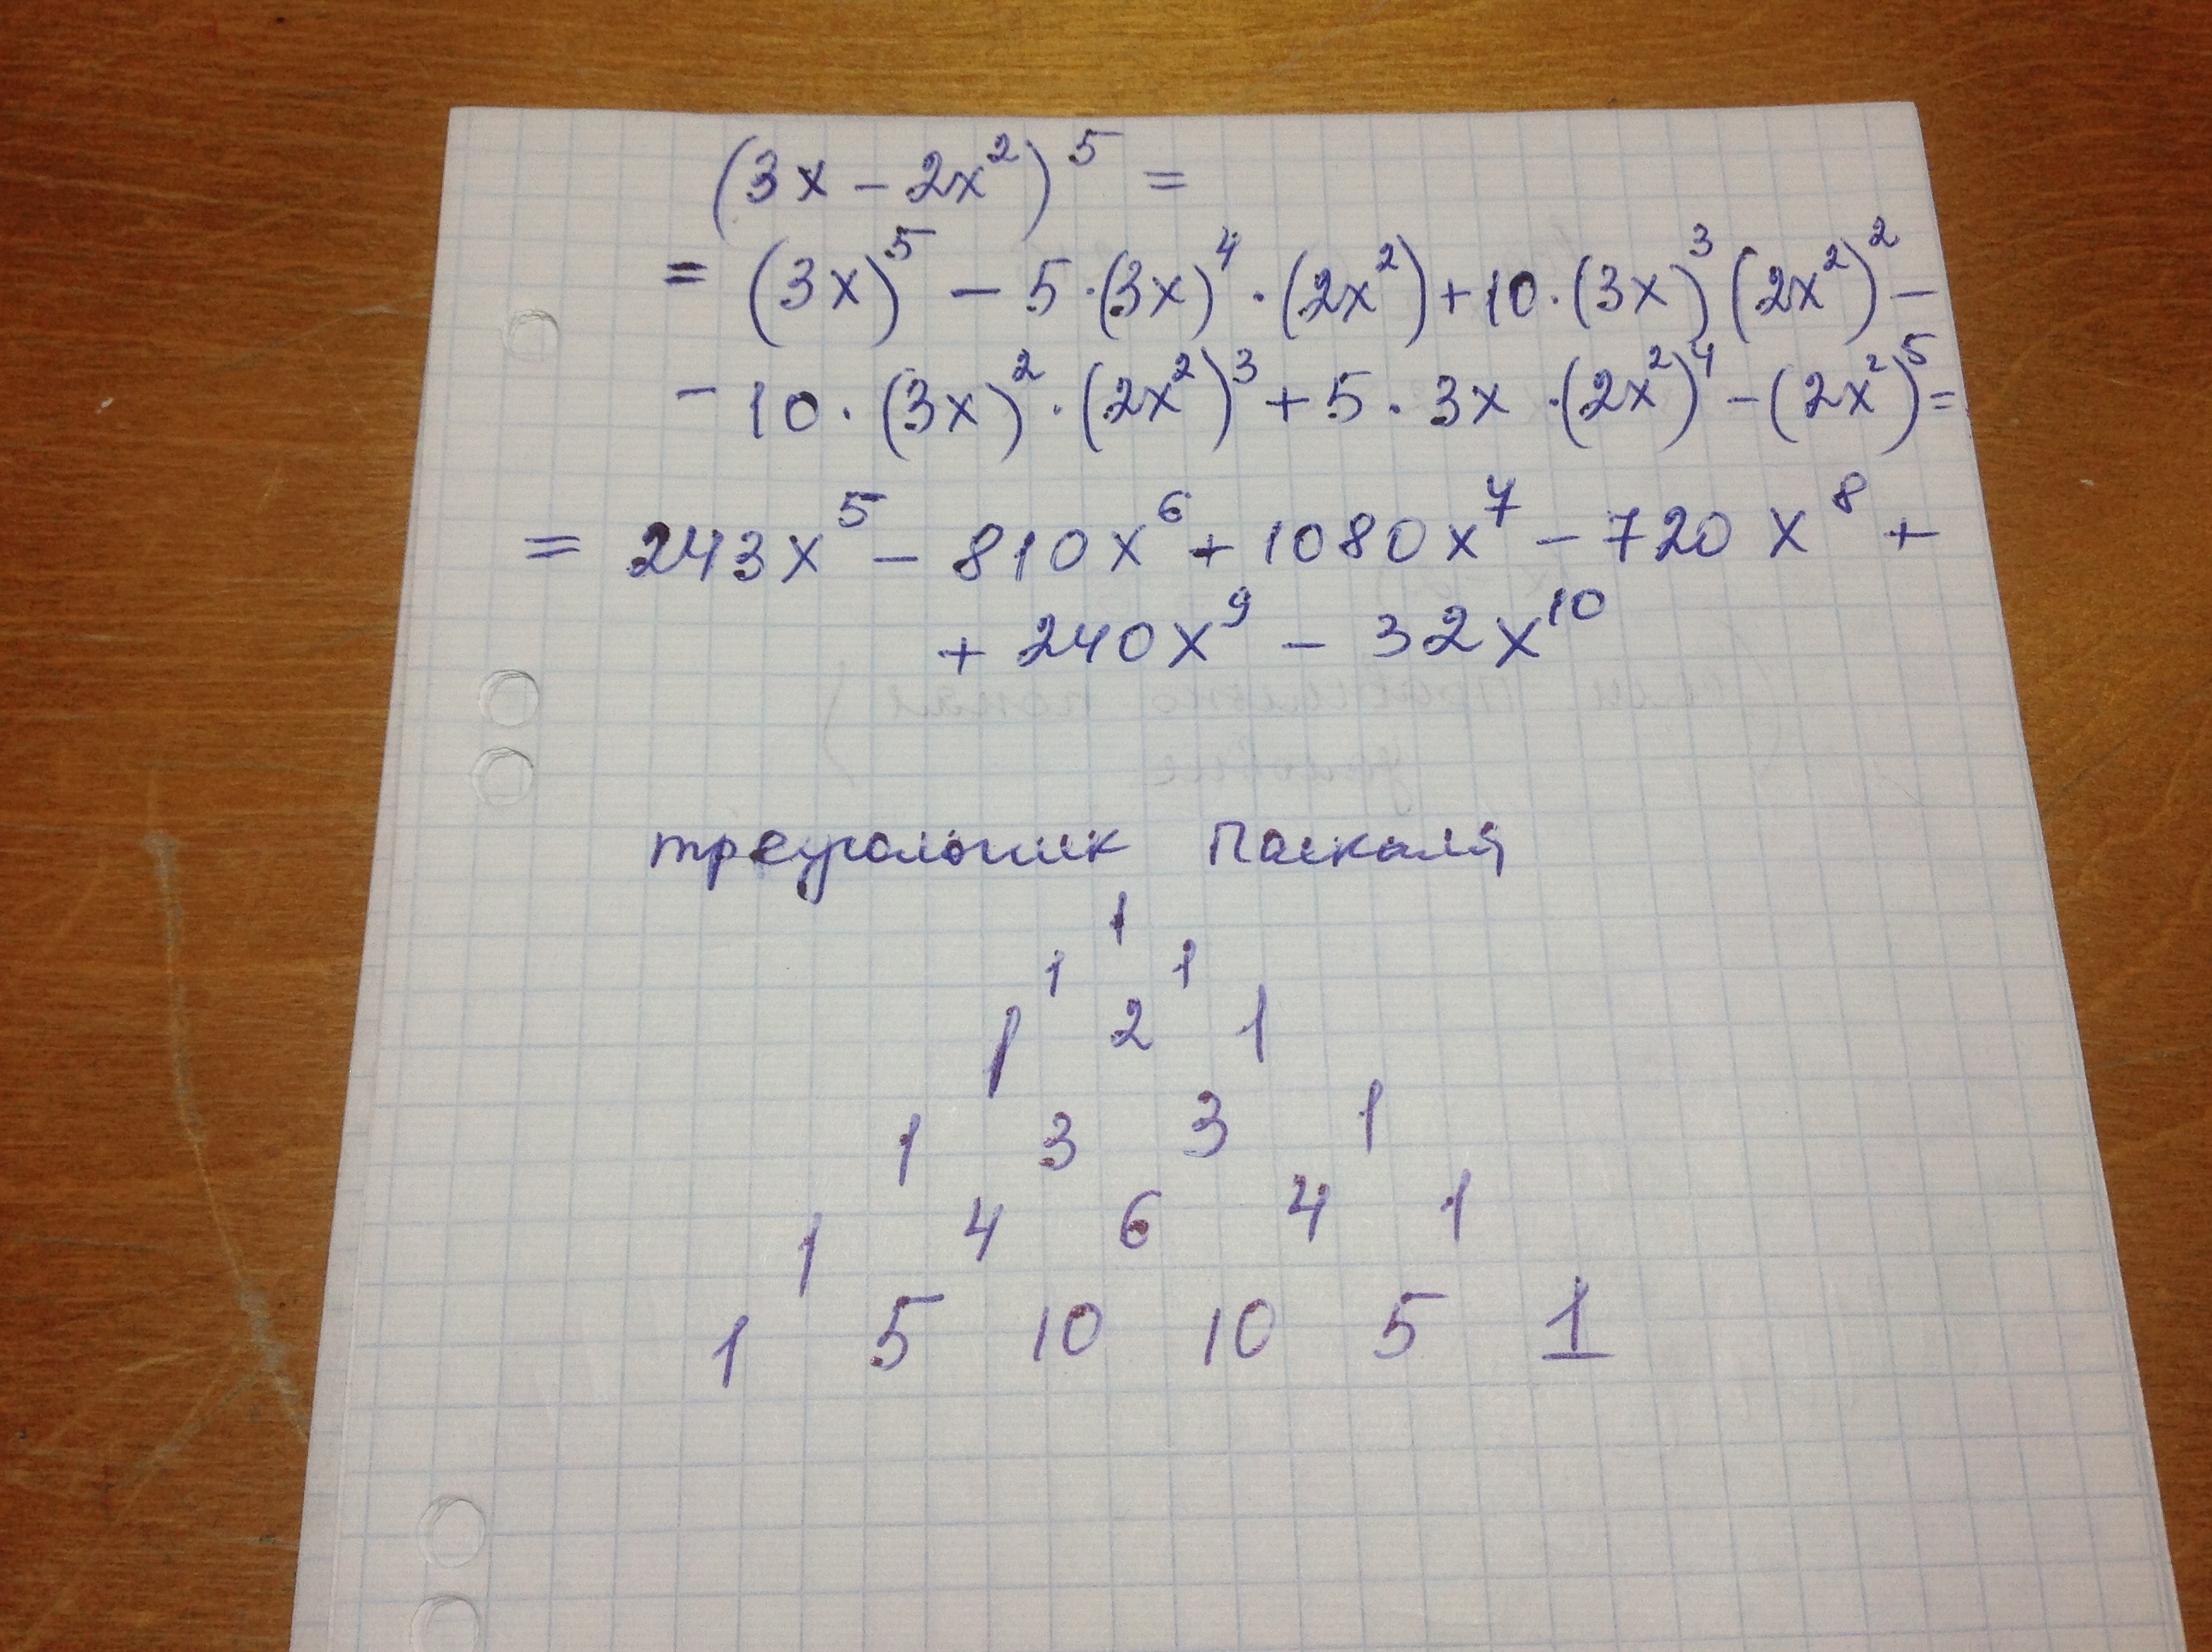 (3x - 2x²)⁵ =
= (3x)⁵ - 5·(3x)⁴·(2x²)+10·(3x)³(2x²)² -
- 10·(3x)²·(2x²)³+5·3x·(2x²)⁴-(2x²)⁵=
= 243x⁵ - 810x⁶ + 1080x⁷ - 720x⁸ +
+ 240x⁹ - 32x¹⁰
треугольник Паскаля
1
1 1
1 2 1
1 3 3 1
1 4 6 4 1
1 5 10 10 5 1